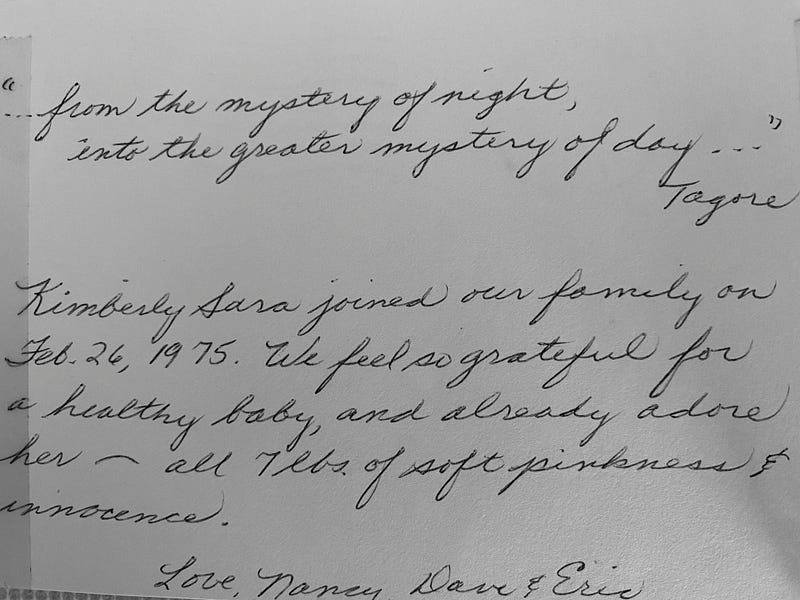 "
...from the mystery of night,
into the greater mystery of day ..."
Tagore
Kimberly Sara joined our family on
Feb. 26, 1975. We feel so grateful for
a healthy baby, and already adore
her — all 7 lbs. of soft pinkness &
innocence.
Love, Nancy, Dave & Eric